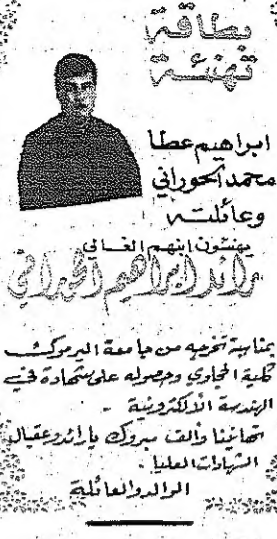 بطاقة
تهنئة
ابراهيم عطا
محمد الحوراني
وعائلته
يهنئون ابنهم الغالي
رائد ابراهيم الحوراني
بمناسبة تخرجه من جامعة اليرموك
كلية الحجاوي وحصوله على شهادة في
الهندسة الألكترونية -
تهانينا وألف مبروك يا رائد وعقبال
الشهادات العليا .
الوالد والعائلة